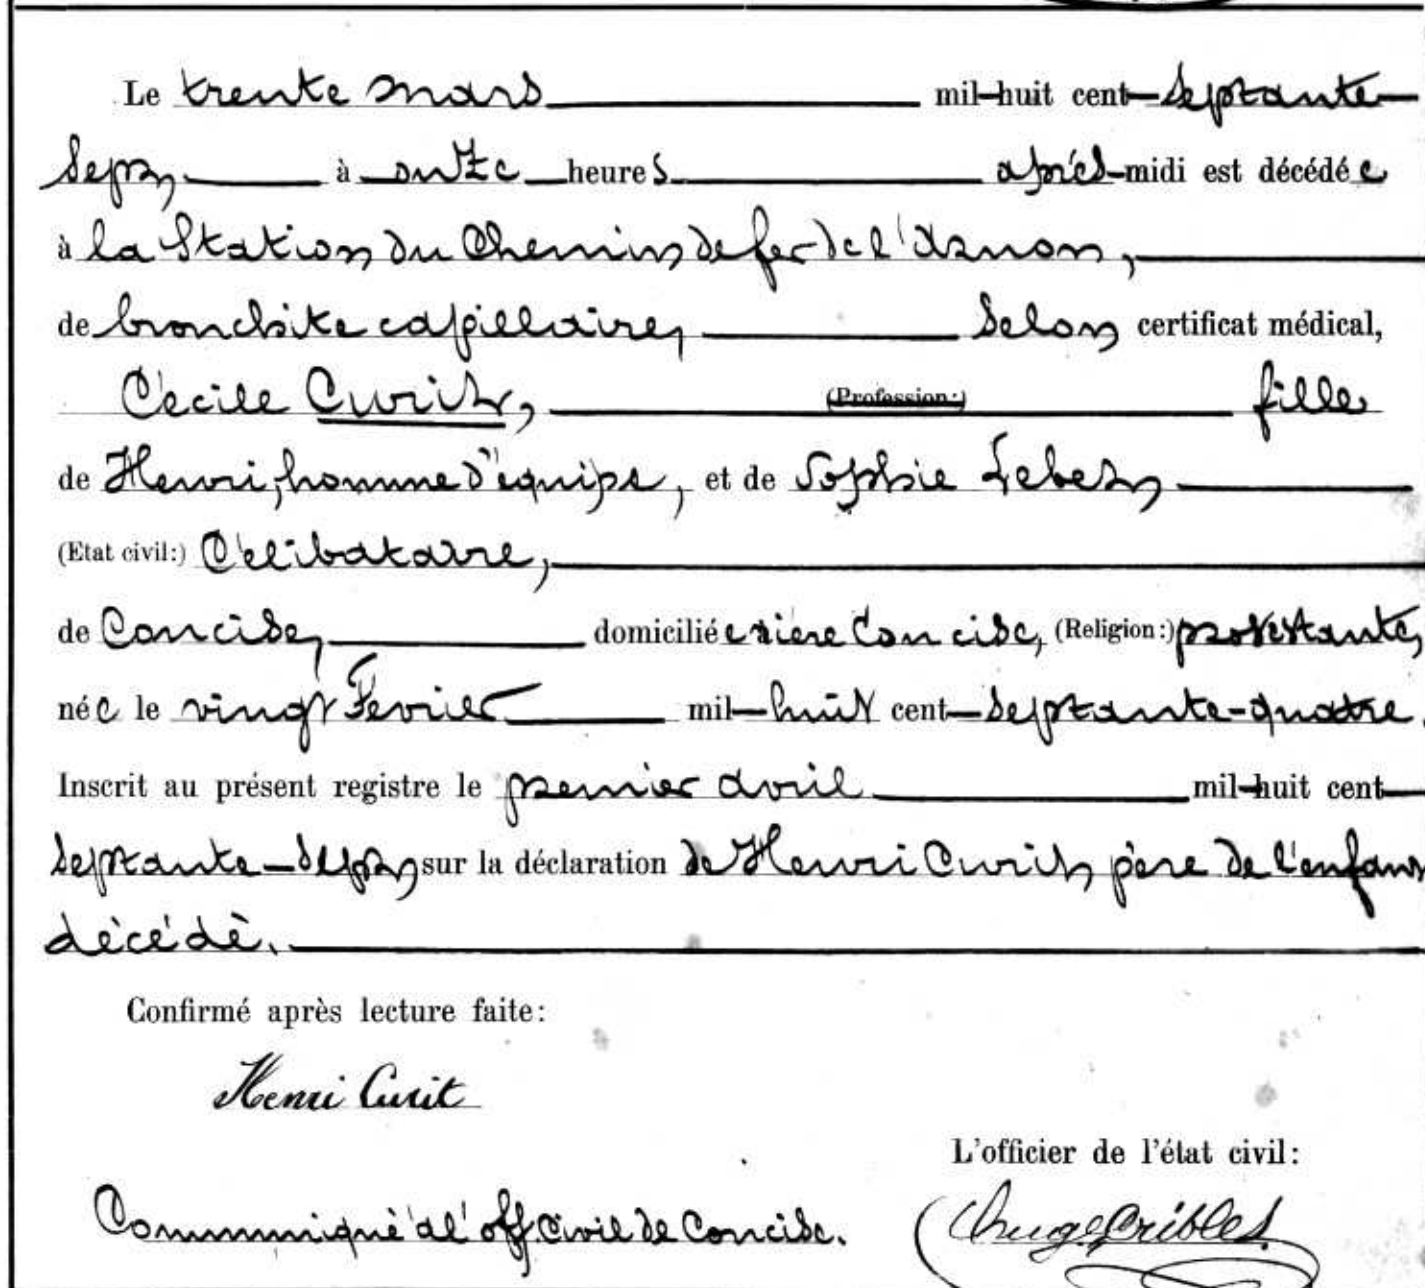 Le trente mars mil huit cent septante
sept, à onze heures après-midi est décédée
à la Station du Chemin de fer de l'
de bronchite capillaire, selon certificat médical,
Cécile Curit, (Profession:) fille
de Henri, homme d'équipe, et de Sophie
(Etat civil:) Célibataire,
de Concise, domiciliée rière Concise, (Religion:) protestante,
née le vingt Fevrier mil-huit cent septante-quatre.
Inscrit au présent registre le premier avril mil-huit cent
septante-sept sur la déclaration de Henri Curit père de l'enfant
décédé.
Confirmé après lecture faite:
Henri Curit
L'officier de l'état civil:
Communiqué à l'off civil de Concise.